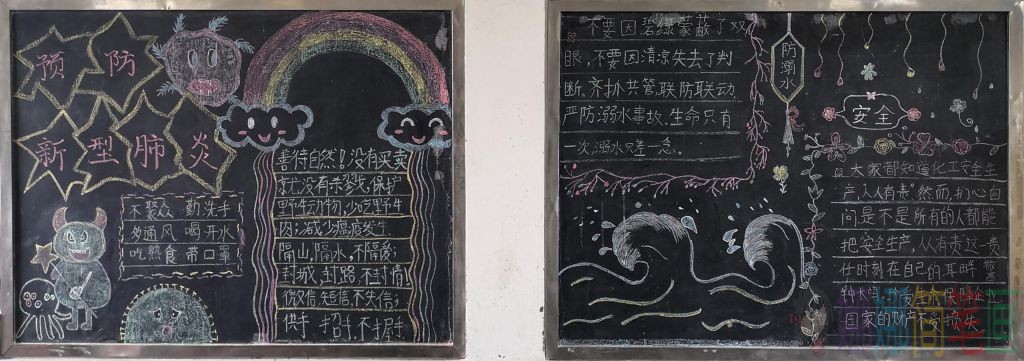 预防
新型肺炎
不聚众 勤洗手
多通风 喝开水
吃熟食 带口罩
善待自然！没有买卖
就没有杀戮，保护
野生动物，少吃野生
肉；减少瘟疫发生
隔山，隔水，不隔爱；
封城，封路，不封情！
微信，短信，不失信；
供手 招手 不握手
不要因碧绿蒙蔽了双
眼，不要因清凉失去了判
断，齐抓共管，联防联动，
严防溺水事故，生命只有
一次，溺水只差一念。
防溺水
安全
大家都知道化工安全生
产，人人有责，然而扪心自
问是不是所有的人都能
把安全生产，人人有责这一责
任时刻在自己的耳畔警
钟长
国家的财产不受损失